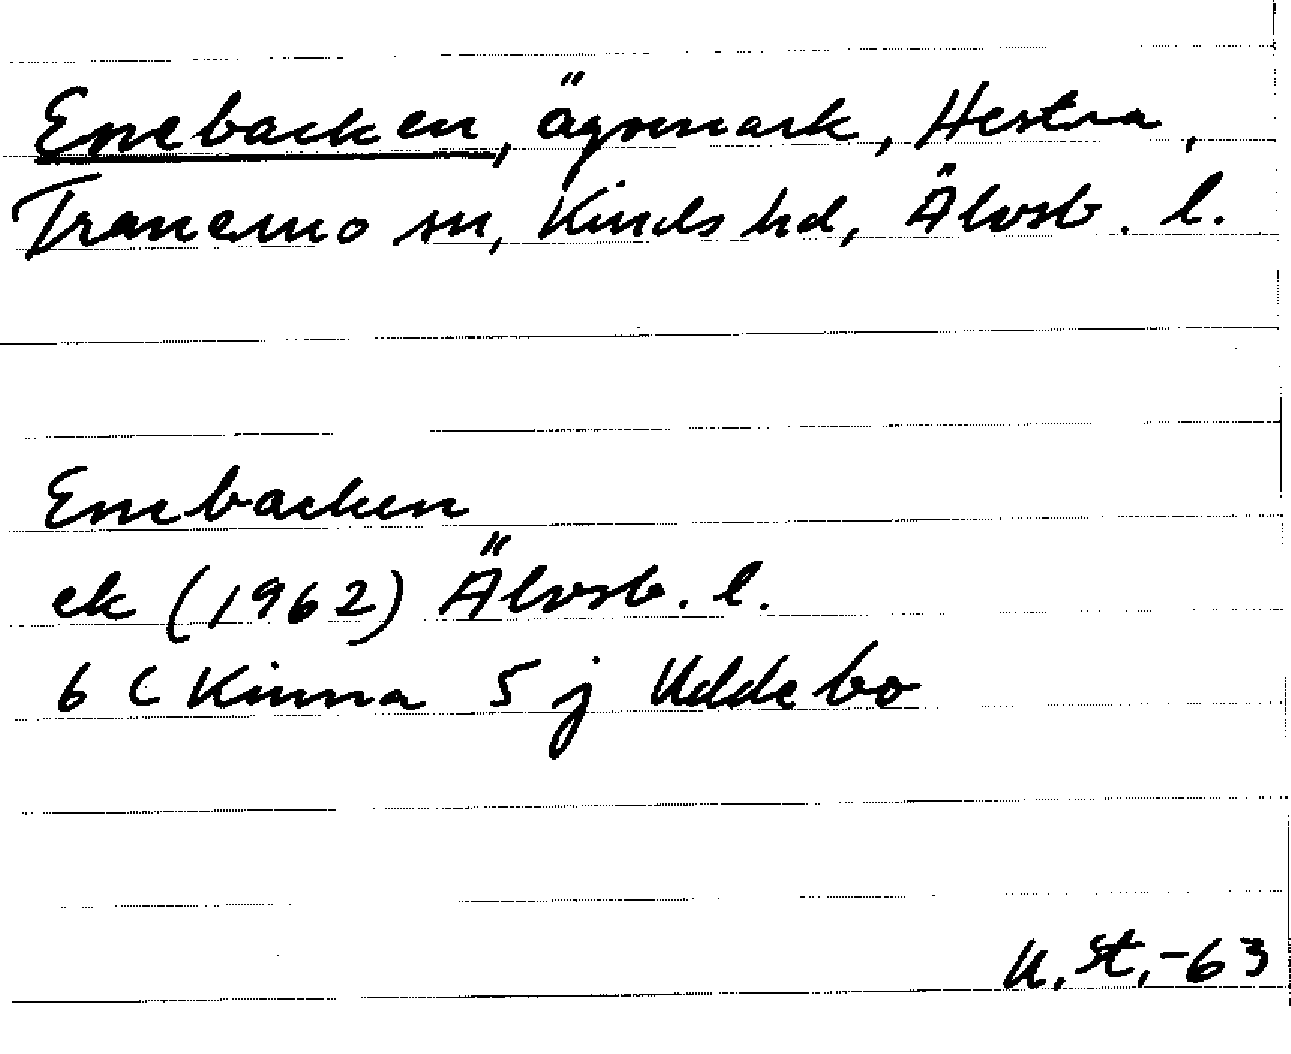 Enebacken, ägomark, Hestra,
Tranemo sn, Kinds hd, Älvsb. l.
Enebacken
ek (1962) Älvsb. l.
6 C Kinna 5 j Uddebo
U. St, -63